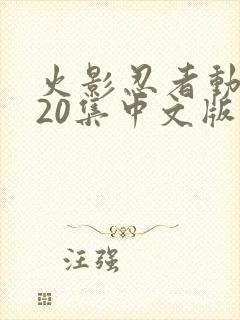 火影忍者動
20集中文版
汪强